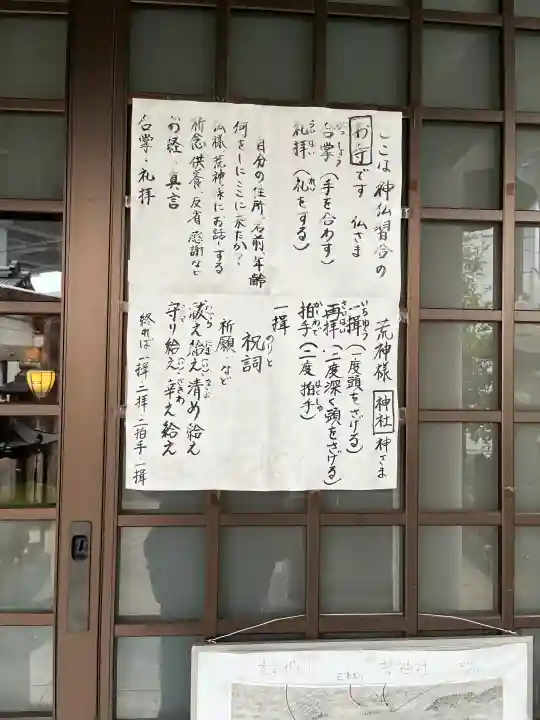 ここは神仏習合の
お寺です 仏さま
合掌(手を合わす)
礼拝(礼をする)
自分の住所、名前、年齢
何をしにここに来たか?
仏様 荒神様にお話しする
祈念 供養 反省 感謝など
お経・真言
合掌・礼拝
荒神様 神社 神さま
一揖(一度頭をさげる)
再拝(二度深く頭をさげる)
拍手(二度拍手)
一揖
祝詞
祈願 など
祓え給え 清め給え
守り給え 幸え給え
終れば 一揖 二拝 二拍手 一揖